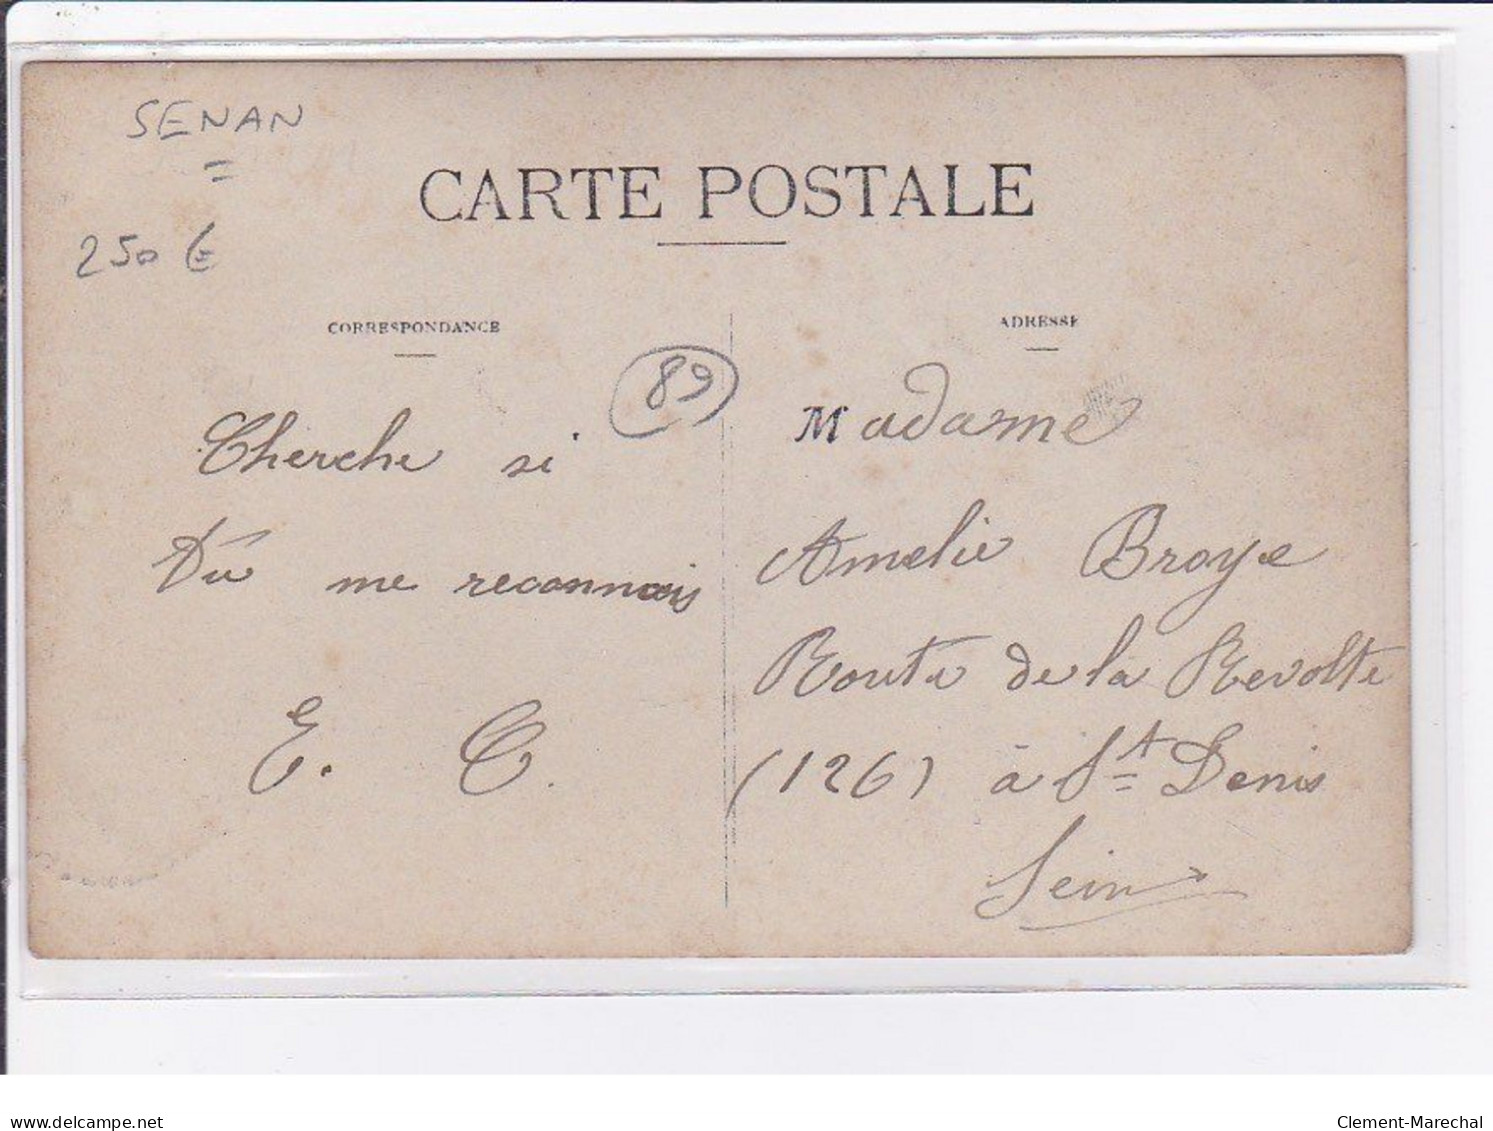 SENAN
=
250 €
CARTE POSTALE
CORRESPONDANCE
ADRESSE
89
Cherche si
Tu me reconnais
E. C.
Madame
Amelie Broye
Route de la Revolte
(126) à St Denis
Seine
delcampe.net
Clement-Marechal